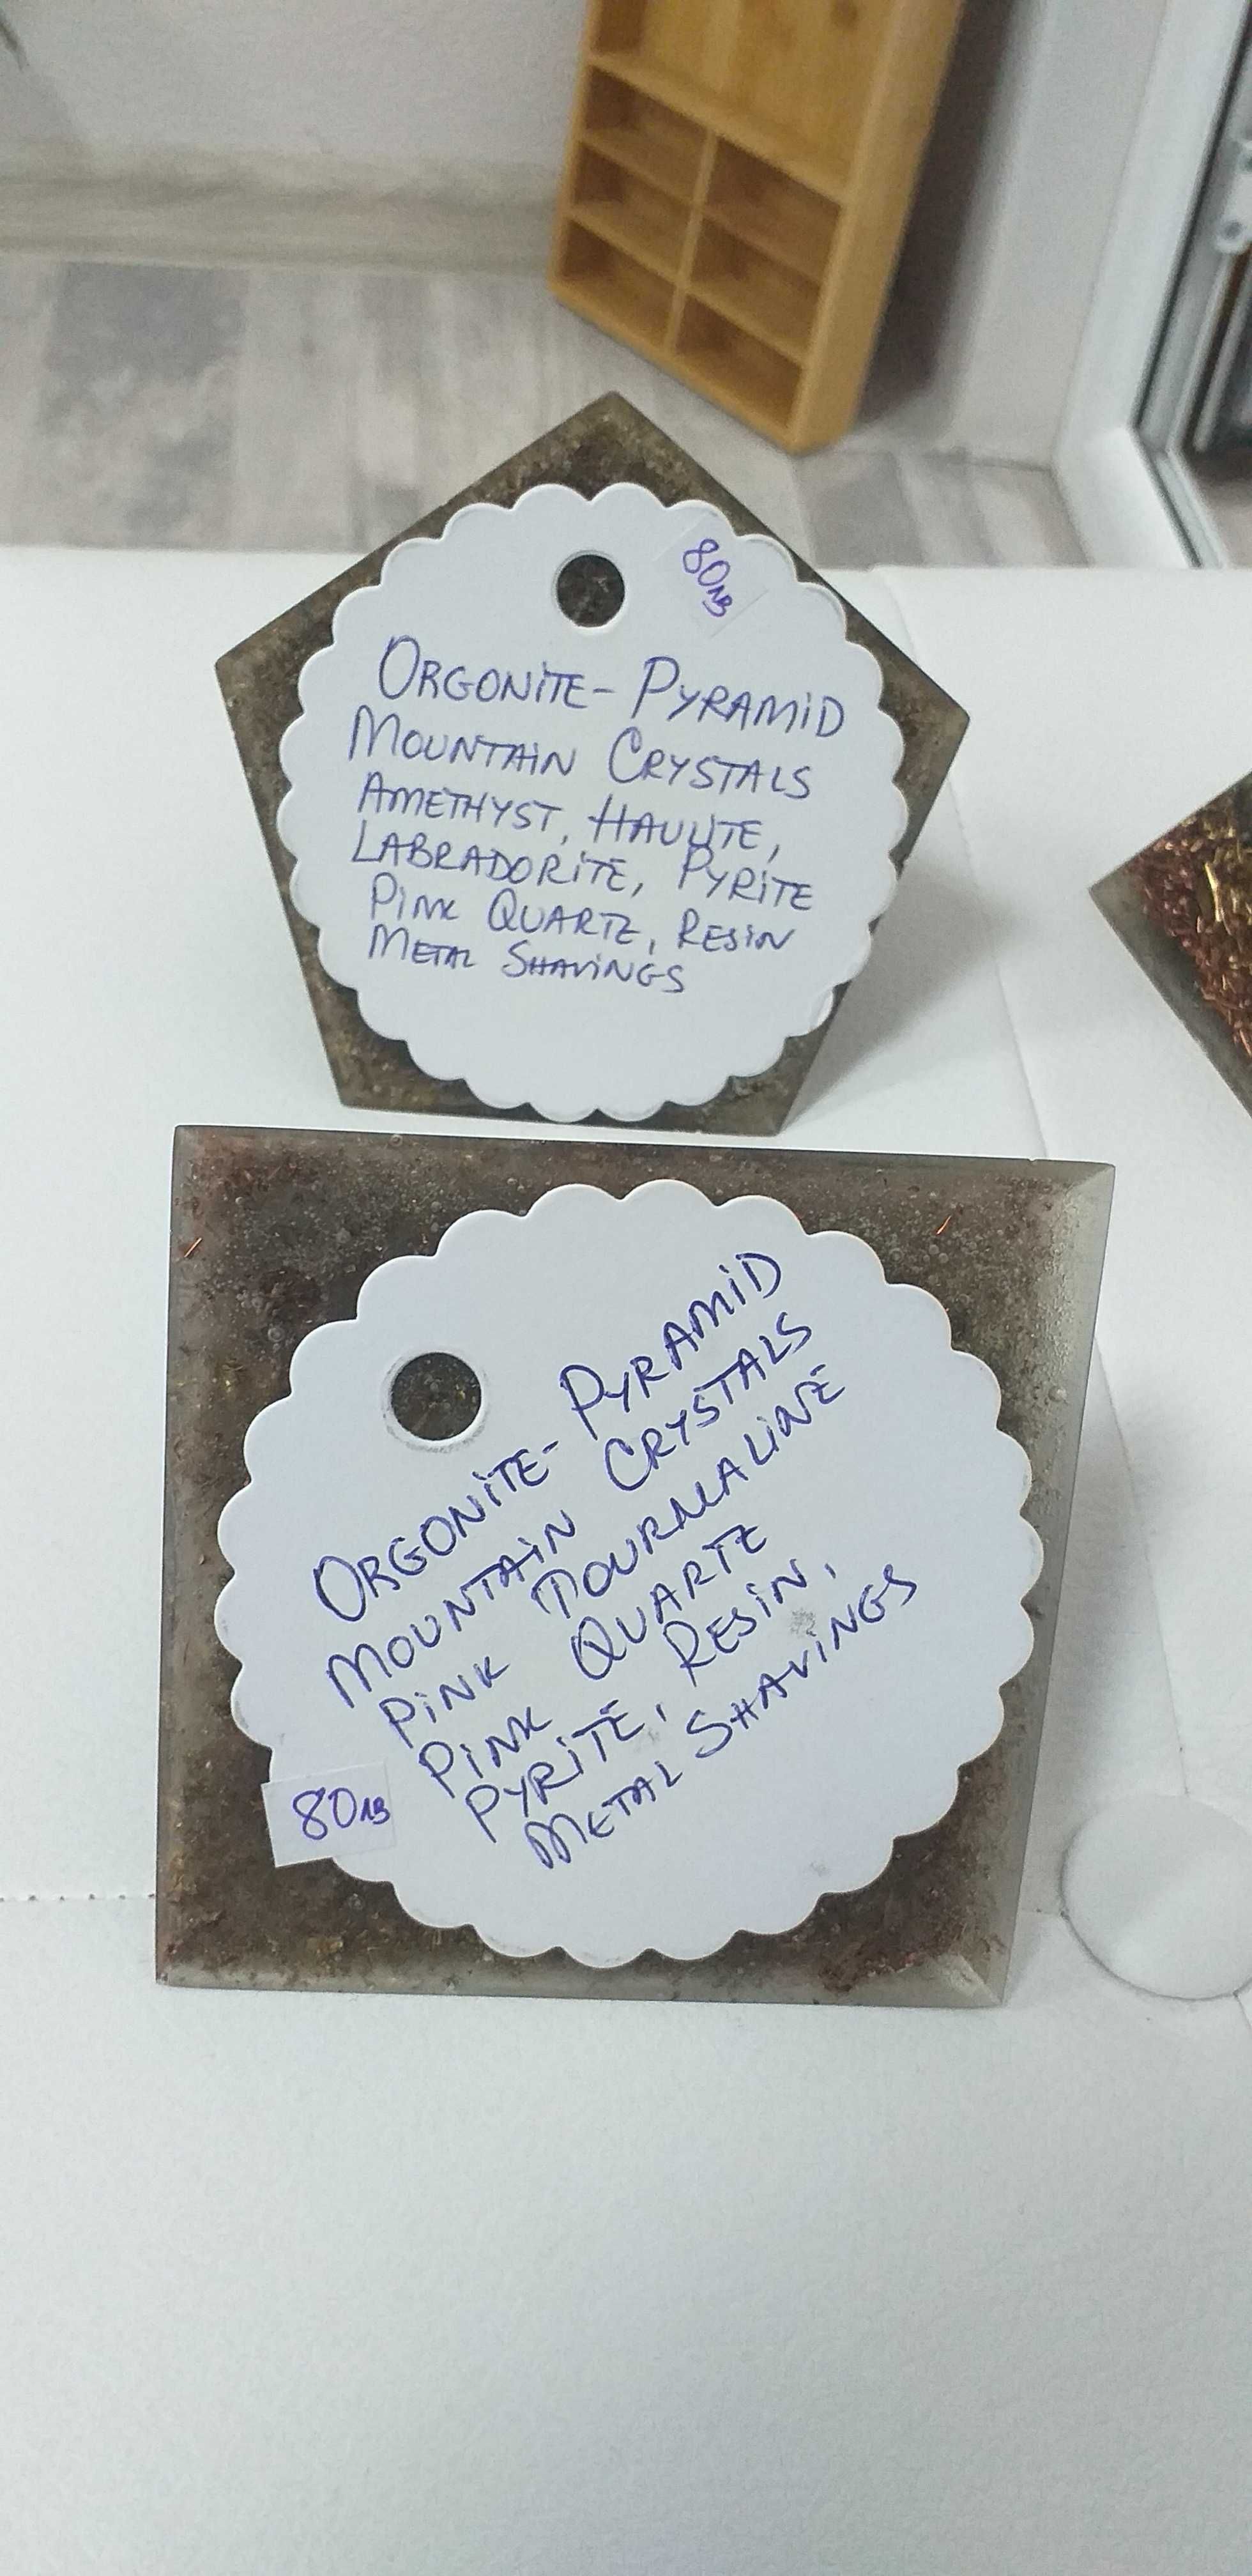 80лв
ORGONiTE - PYRAMiD
MOUNTAiN CRYSTALS
AMETHYST, HAULiTE,
LABRADORiTE, PYRiTE
PiNK QUARTZ, RESiN
METAL SHAViNGS
ORGONiTE - PYRAMiD
MOUNTAiN CRYSTALS
PiNK TOURMALiNE
PiNK QUARTZ
PYRiTE, RESiN,
METAL SHAViNGS
80лв